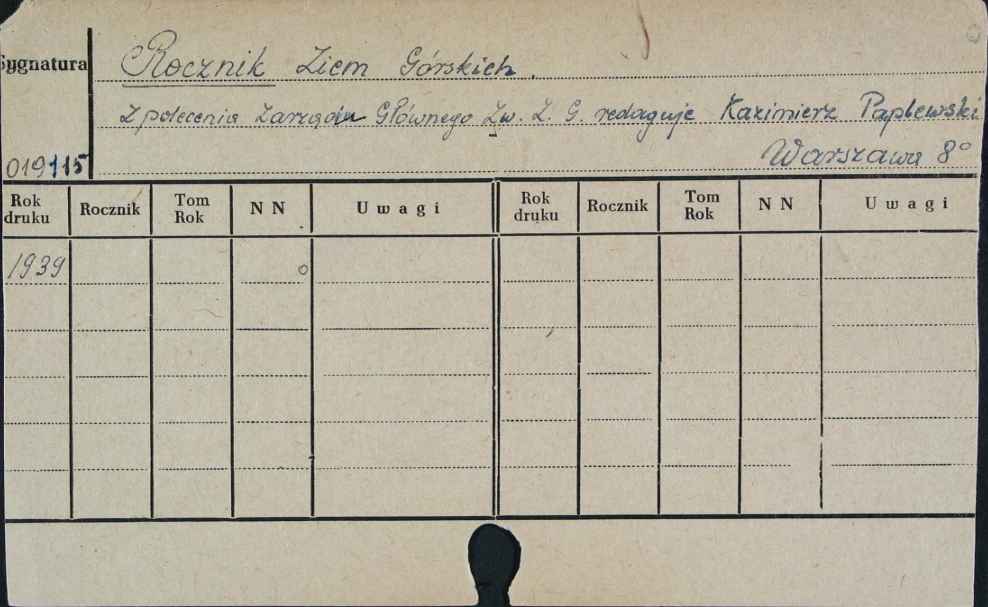 Sygnatura
Rocznik Ziem Górskich.
Z polecenia Zarządu Głównego Zw. Z. G. redaguje Kazimierz Paplewski
Warszawa 8°
019115
Rok druku Rocznik Tom Rok N N Uwagi Rok druku Rocznik Tom Rok N N Uwagi
1939